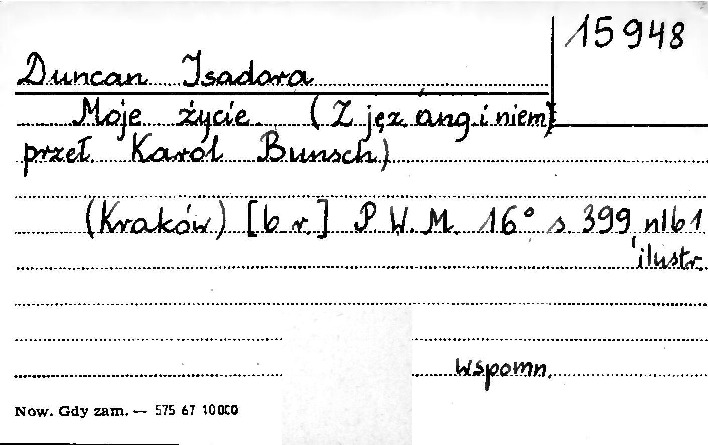 15948
Duncan Isadora
Moje życie. (Z jęz. ang. i niem)
przeł. Karol Bunsch)
(Kraków) [b r.] P.W.M. 16° s 399 nlb 1
ilustr.
wspomn.
Now. Gdy zam. — 575 67 10000